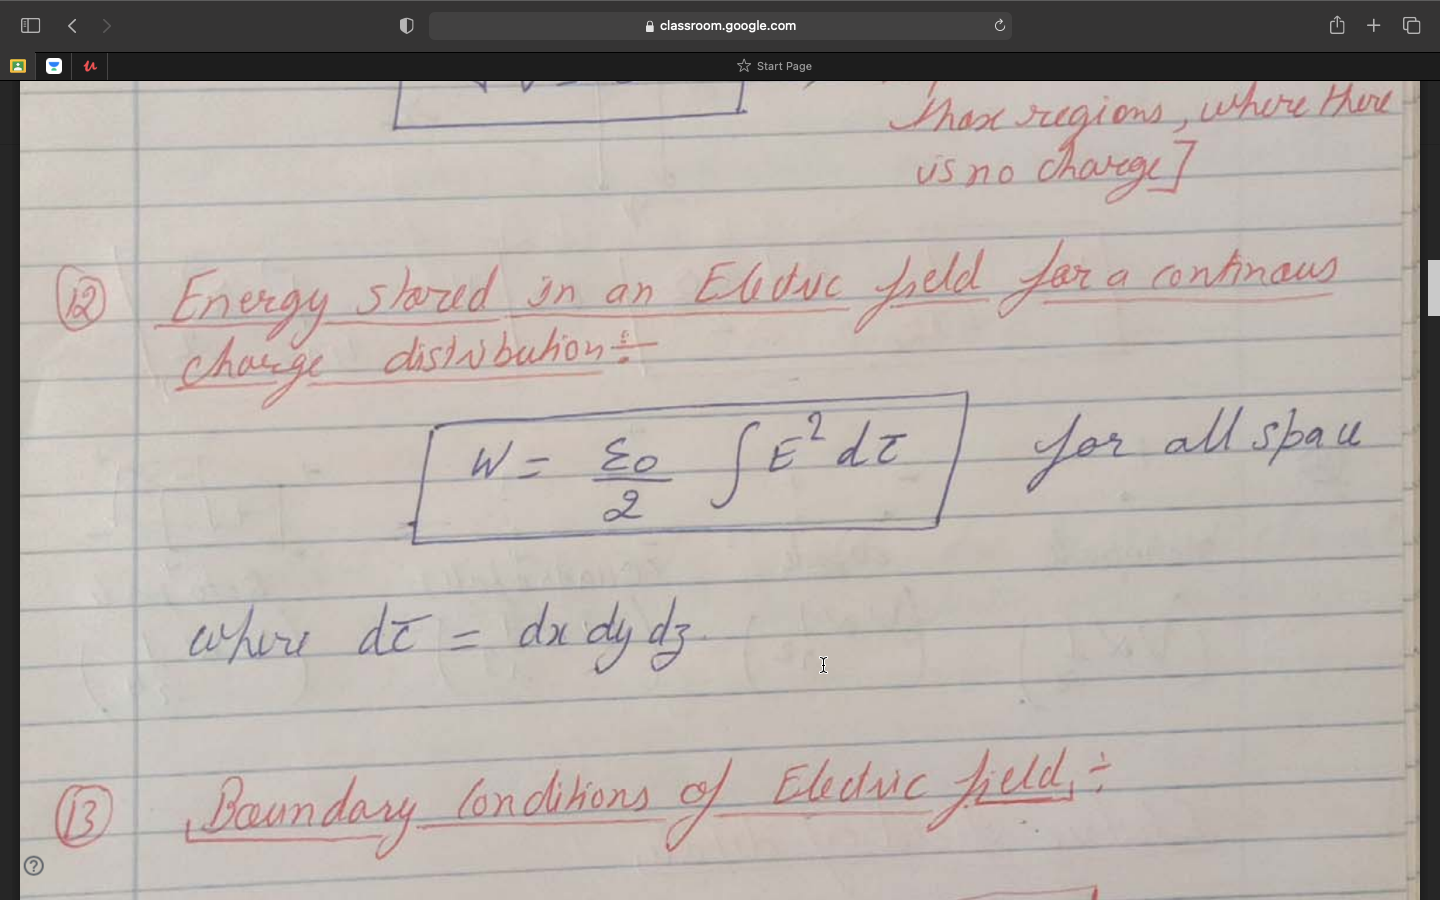 classroom.google.com
Start Page
those regions, where there
is no charge]
(12) Energy stored in an Electric field for a continous
charge distribution÷
W = ε0/2 ∫ E² dτ for all space
where dτ = dx dy dz.
(13) Boundary Conditions of Electric field,÷